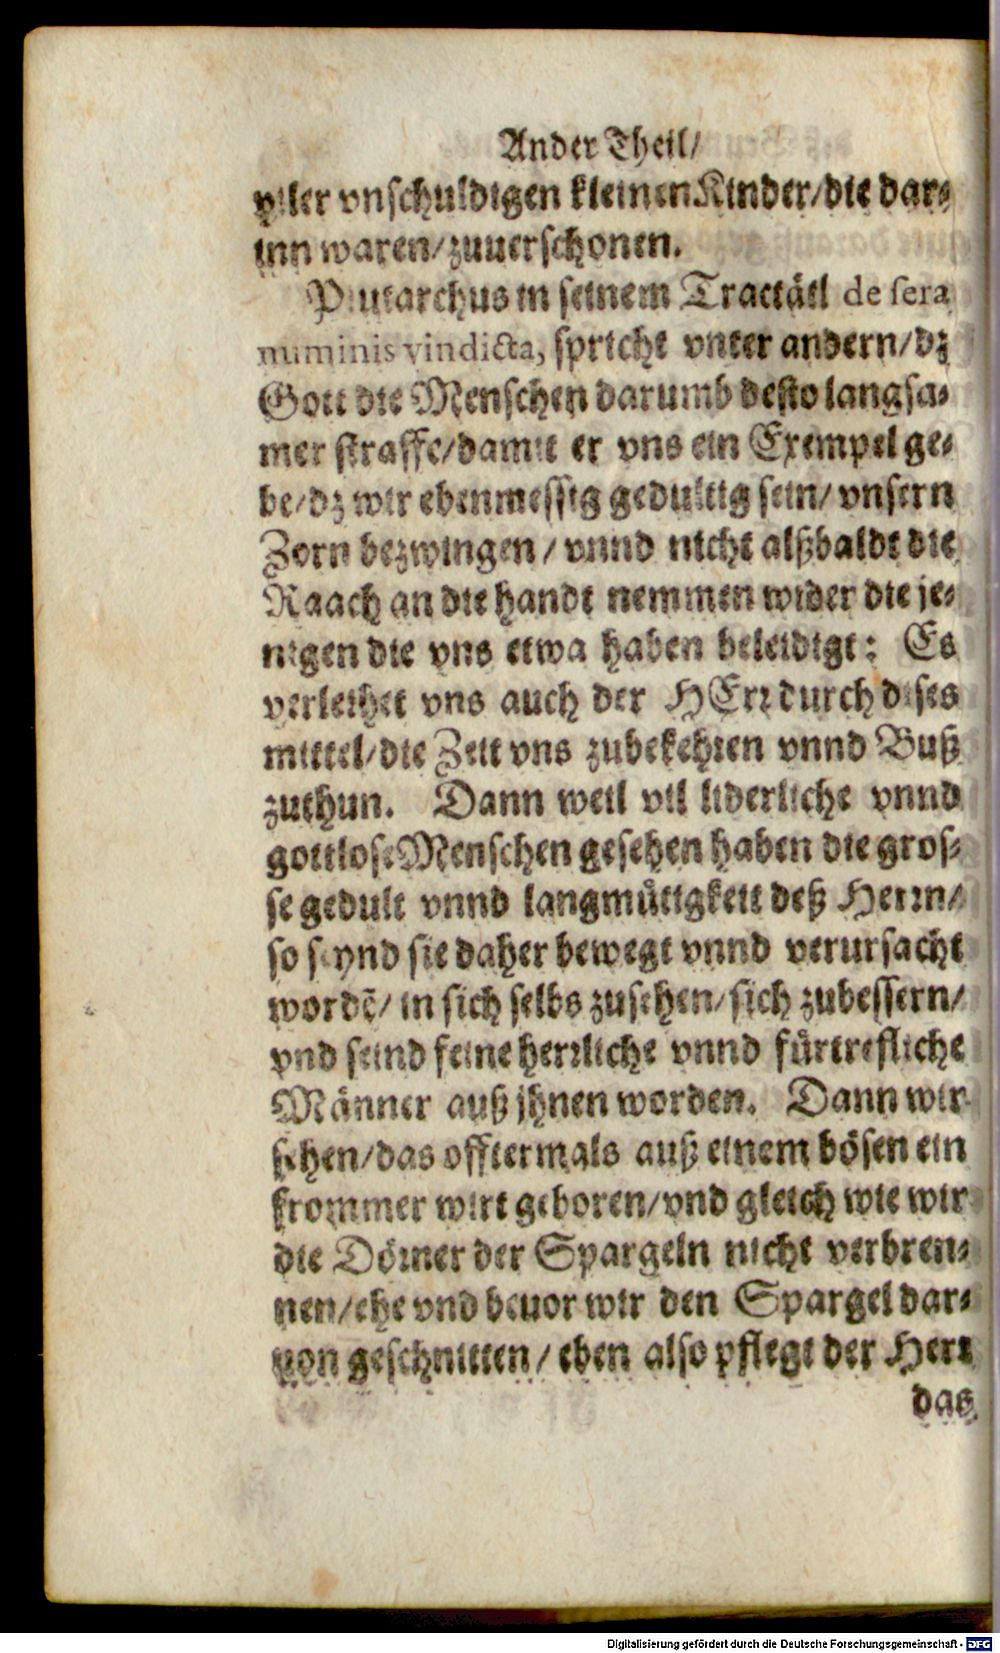 Ander Theil/
viler vnschuldigen kleinen Kinder/die dar⸗
inn waren/zuuerschonen.
Plutarchus in seinem Tractätl de sera
numinis vindicta, spricht vnter andern/dz
Gott die Menschen darumb desto langsa⸗
mer straffe/damit er vns ein Exempel ge⸗
be/dz wir ebenmessig gedultig sein/vnsern
Zorn bezwingen/vnnd nicht alßbaldt die
Raach an die handt nemmen wider die je⸗
nigen die vns etwa haben beleidigt: Es
verleihet vns auch der HErr durch dises
mittel/die Zeit vns zubekehren vnnd Buß
zuthun. Dann weil vil liderliche vnnd
gottlose Menschen gesehen haben die gros⸗
se gedult vnnd langmuͤtigkeit deß Herrn/
so seynd sie daher bewegt vnnd verursacht
wordẽ/in sich selbs zusehen/sich zubessern/
vnd seind feine herrliche vnnd fürtrefliche
Männer auß jhnen worden. Dann wir
sehen/das offtermals auß einem bösen ein
frommer wirt geboren/vnd gleich wie wir
die Dörner der Spargeln nicht verbren⸗
nen/ehe vnd beuor wir den Spargel dar⸗
von geschnitten/eben also pflegt der Herr
das
Digitalisierung gefördert durch die Deutsche Forschungsgemeinschaft - DFG